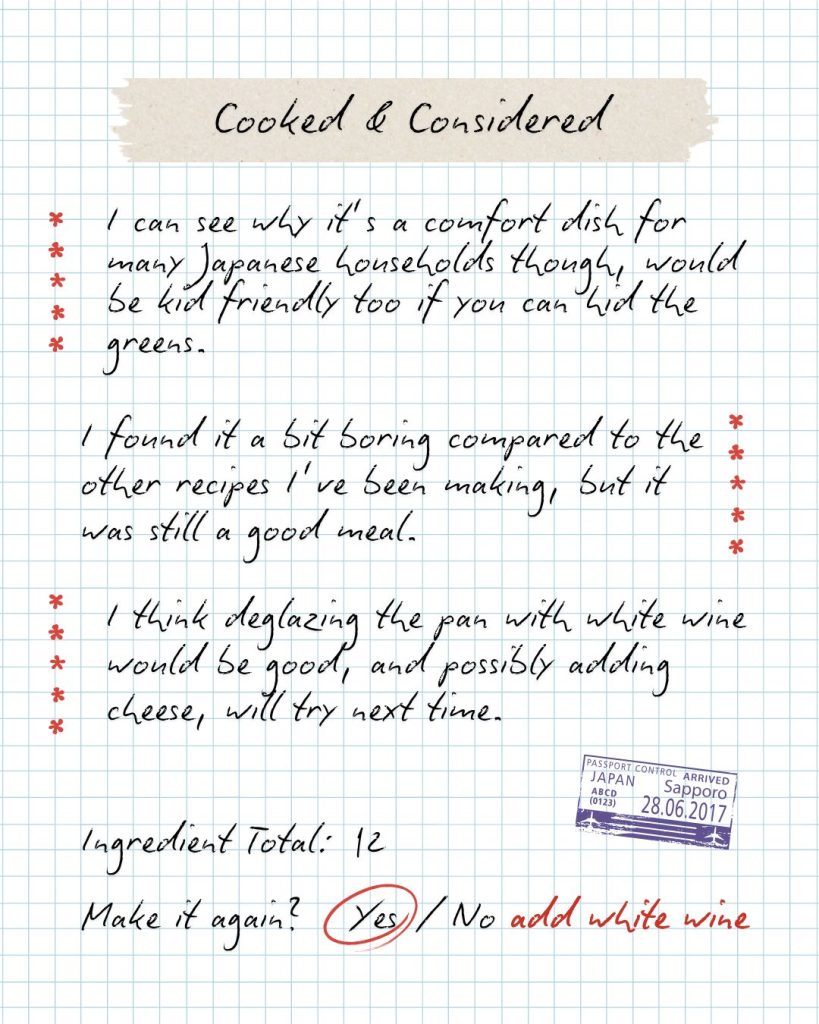 Cooked & Considered
I can see why it's a comfort dish for
many Japanese households though, would
be kid friendly too if you can hid the
greens.
I found it a bit boring compared to the
other recipes I've been making, but it
was still a good meal.
I think deglazing the pan with white wine
would be good, and possibly adding
cheese, will try next time.
PASSPORT CONTROL ARRIVED
JAPAN Sapporo
ABCD
(0123) 28.06.2017
Ingredient Total: 12
Make it again? Yes / No add white wine